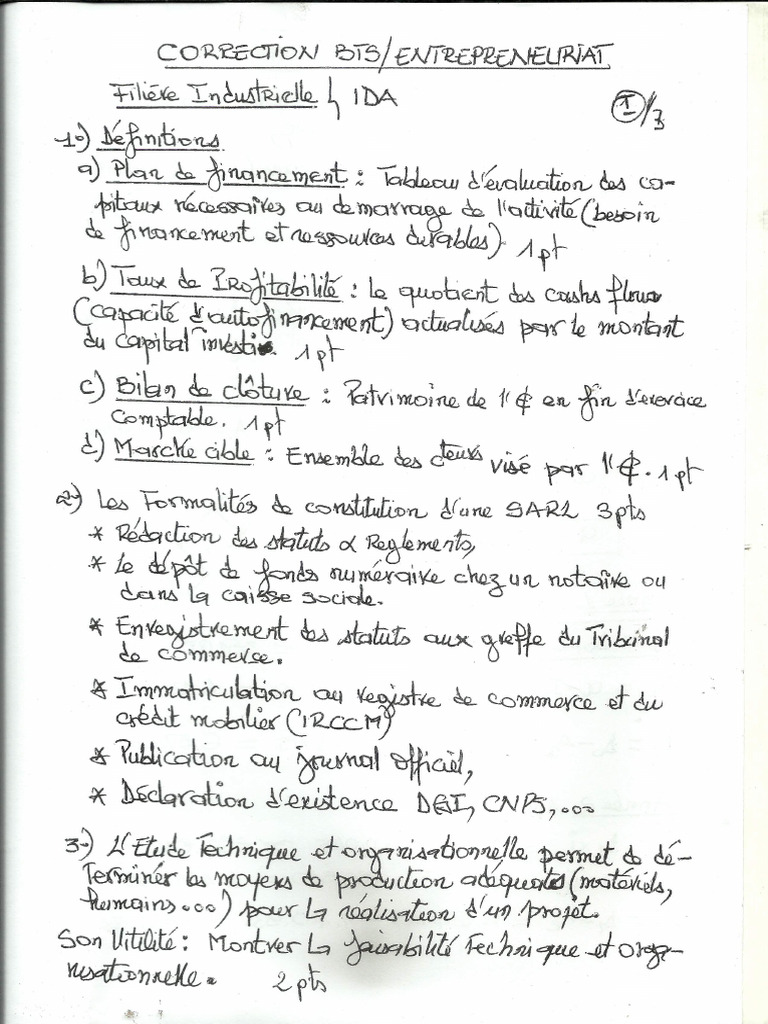 CORRECTION BTS/ENTREPRENEURIAT
Filière Industrielle IDA
I/3
1°) Définitions
a) Plan de financement : Tableau d'évaluation des ca-
pitaux nécessaires au demarrage de l'activité (besoin
de financement et ressources durables). 1pt
b) Taux de Profitabilité : le quotient des cashs flows
(capacité d'autofinancement) actualisés par le montant
du capital investi. 1pt
c) Bilan de clôture : Patrimoine de l'₵ en fin d'exercice
comptable. 1pt
d) Marché cible : Ensemble des cteurs visé par l'₵. 1pt
2°) Les Formalités de constitution d'une SARL 3pts
* Rédaction des statuts & Reglements,
* Le dépôt de fonds numéraire chez un notaire ou
dans la caisse sociale.
* Enregistrement des statuts aux greffe du Tribunal
de commerce.
* Immatriculation au registre de commerce et du
crédit mobilier (IRCCM)
* Publication au journal officiel,
* Déclaration d'existence DGI, CNPS,...
3°) L'Etude Technique et organisationnelle permet de dé-
terminer les moyens de production adéquats (matériels,
humains...) pour la réalisation d'un projet.
Son Utilité : Montrer la faisabilité Technique et orga-
nisationnelle. 2pts